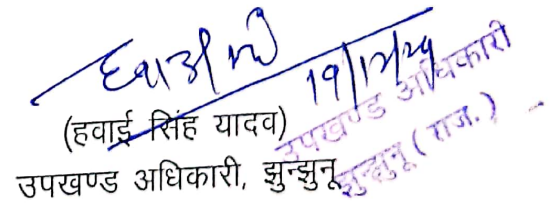 19/12/24
(हवाई सिंह यादव)
उपखण्ड अधिकारी, झुन्झुनू
उपखण्ड अधिकारी
झुन्झुनू (राज.)